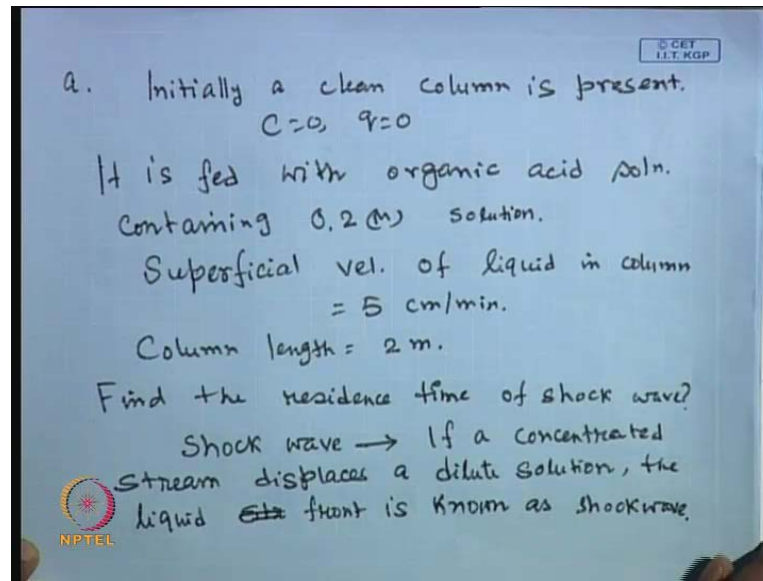 © CET
I.I.T. KGP
a. Initially a clean column is present.
C=0, q=0
It is fed with organic acid soln.
containing 0.2 (M) solution.
Superficial vel. of liquid in column
= 5 cm/min.
Column length = 2 m.
Find the residence time of shock wave?
Shock wave → If a concentrated
stream displaces a dilute solution, the
liquid front is known as shockwave.
NPTEL